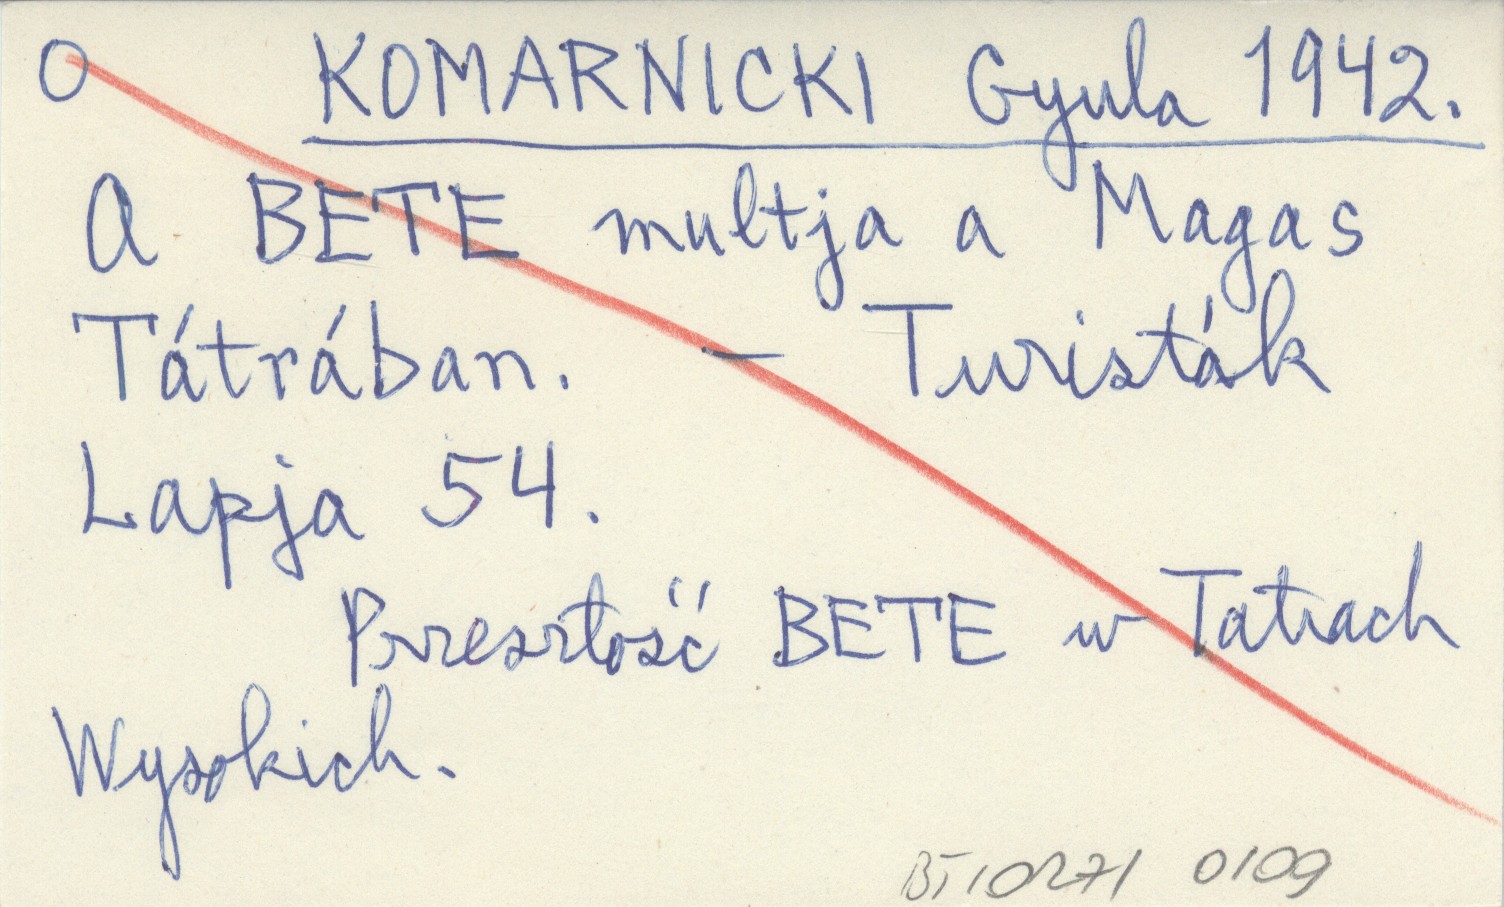 O KOMARNICKI Gyula 1942.
A BETE multja a Magas
Tátrában. — Turisták
Lapja 54.
Przeszłość BETE w Tatrach
Wysokich.
0109